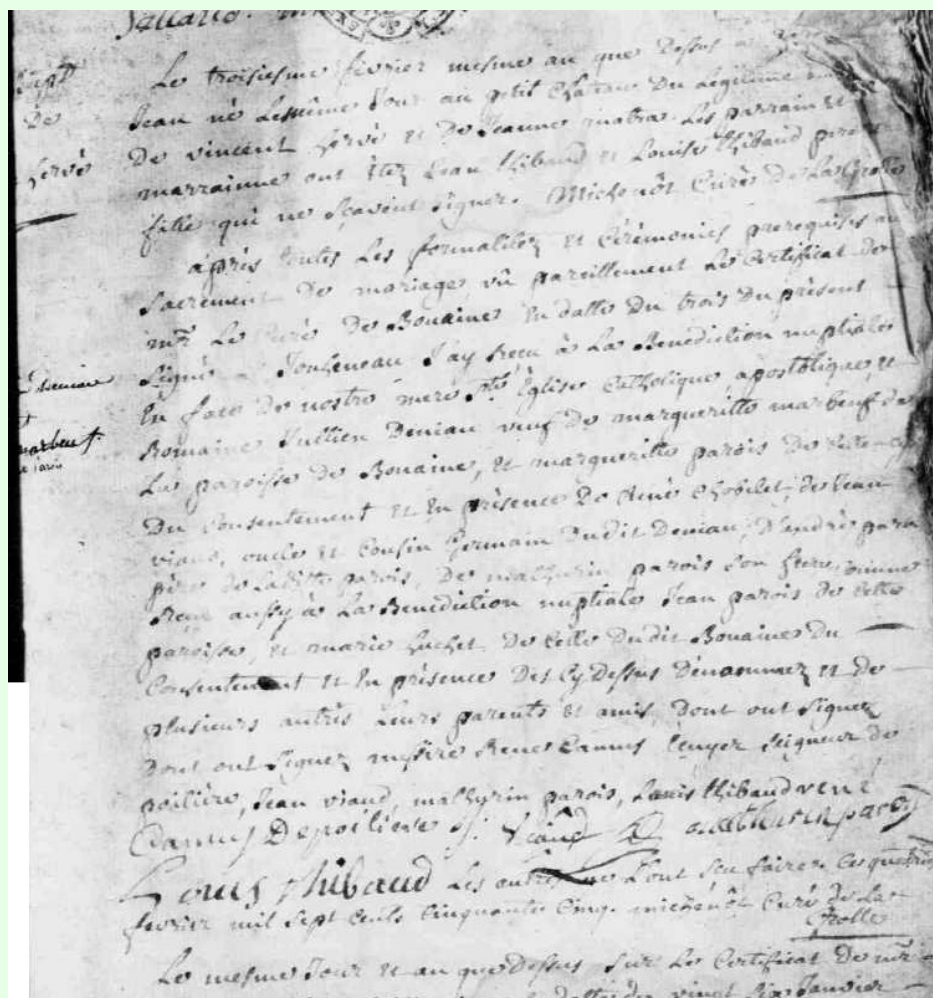 Le troisiesme février mesme an que Dessus a
Jean né Lesmême Jour au petit château Du Légitime
De vincent hervé et De Jeanne Les parrain et
marrainne ont étez Jean thibaud et Louise thibaud
fille qui ne sçavent signer. Michenôt Curé de La Grolle
après toutes Les formalitez et Cérémonies prerequises au
Sacrement De mariage vû pareillement Le Certificat de
mr Le Curé De Bouaine En datte Du trois Du présent
Signé Joubeneau J'ay receu à La Benediction nuptiale
En face De nostre mere Ste Église Catholique, apostolique, et
Romaine Jullien Deniau veuf de margueritte marbeuf de
La paroisse De Bouaine, et margueritte parois De
Du Consentement et En présence De Aimé Chobelet, de Jean
viaud, oncle et Cousin Germain Dudit Deniau, D'andré parois
père De Laditte parois, De mathurin parois Son frere, comme
Reçu aussy à La Benediction nuptiale Jean parois de Cette
paroisse, et marie huchet De Celle Dudit Bouaine Du
Consentement et En présence Des Cy Dessus Dénommez et de
plusieurs autres Leurs parents et amis, Dont ont Signez
Dont ont Signez messire René Camus Ecuyer Seigneur de
poilière, Jean viaud, mathurin parois, Louis thibaud rene
Camus Depoiliere J. Viaud mathurin parois
Louis thibaud Les autres ne L'ont sçu faire. Ce quatre
février mil Sept Cents Cinquante Cinq. michenôt Curé De La
Grolle
Le mesme Jour et an que Dessus Sur Le Certificat De mr
vingt Six Janvier
hervé
Deniau
marbeuf.